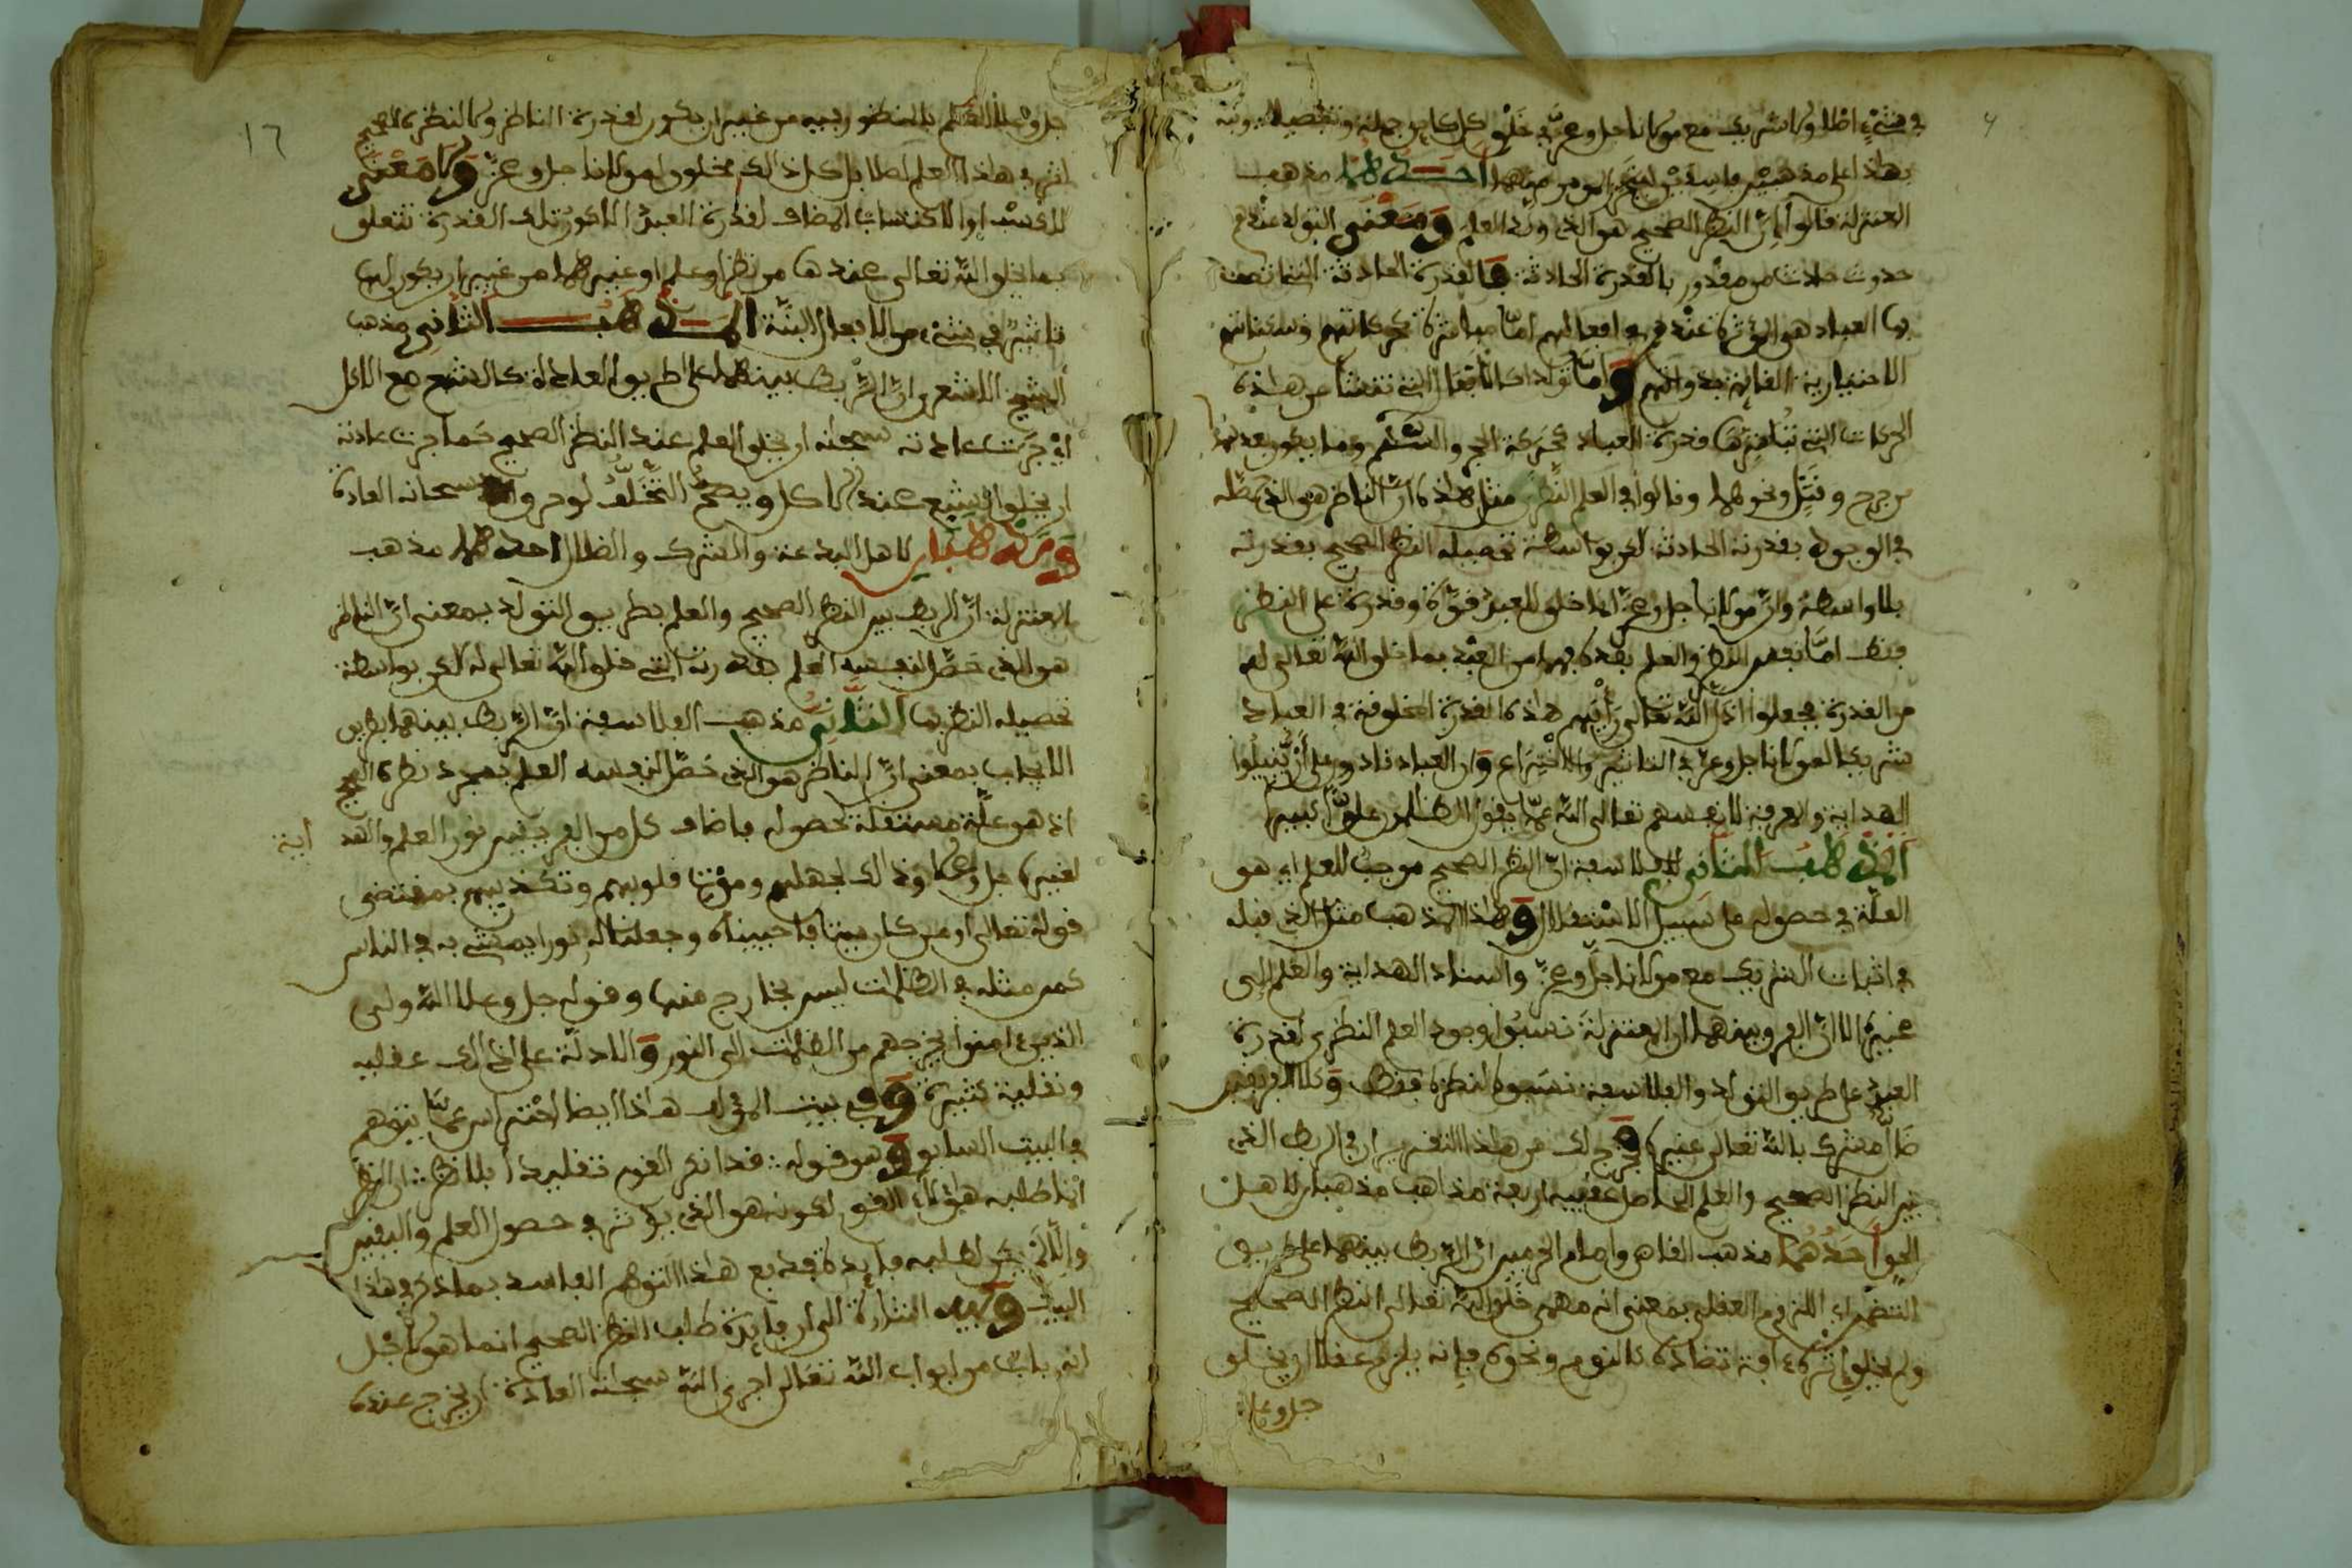 في شيء اصلا ولا شريك مع مولانا جل وعز في خلق كل كاين جملة وتفصيلا ونبه
بهذا على مذهبين فاسدين احدهما مذهب
المعتزلة قالوا ان النظر الصحيح هو الذي ولد العلم ومعنى التولد عندهم
حدوث حادث من مقدور بالقدرة الحادثة فالقدرة الحادثة التي اتصف
بها العباد هي المؤثرة عندهم في افعالهم اما مباشرة كحركاتهم وسكناتهم
الاختيارية القائمة بذواتهم واما تولدا كالافعال التي تنشأ عن هذه
الحركات التي تباشرها قدرة العباد كحركة الحجر والسهم وما يكون بعدهما
من جرح وقتل ونحوهما وقالوا في العلم النظري مثل هذه ان الناظر هو الذي حصله
في الوجود بقدرته الحادثة لكن بواسطة تحصيله النظر الصحيح بقدرته
بلا واسطة وان مولانا جل وعز انما خلق للعبد قوة وقدرة على النظر
فقط اما نفس النظر والعلم بعده فهما من العبد بما خلق الله تعالى له
من القدرة فجعلوا اذا لله تعالى رأيهم هذه القدرة المخلوقة في العباد
شريكا لمولانا جل وعز في التاثير والاختراع وان العباد قادرون على ان ينيلوا
الهداية والمعرفة لانفسهم تعالى الله عما يقول الظالمون علوا كبيرا
المذهب الثاني للفلاسفة ان النظر الصحيح موجب للعلم اي هو
العلة في حصوله على سبيل الاستقلال وهذا المذهب مثل الذي قبله
في اثبات الشريك مع مولانا جل وعز واسناد الهداية والعلم الى
غيره الا ان الفرق بينهما ان المعتزلة نسبوا وجود العلم النظري لقدرة
العبد على طريق التولد والفلاسفة نسبوه لنظره فقط وكلا الفريقين
ضال مشرك بالله تعالى غيره فخرج لك من هذا التقرير ان في الربط الذي
بين النظر الصحيح والعلم الحاصل عقبه اربعة مذاهب مذهبان لاهل
الحق احدهما مذهب القاضي وامام الحرمين ان الربط بينهما على طريق
التضمن اي اللزوم العقلي بمعنى انه مهما خلق الله تعالى النظر الصحيح
ولم يخلق اثره ءافة تضاده كالنوم ونحوه فانه يلزم عقلا ان يخلق
جل وعلا
جل وعلا العلم بالمنظور فيه من غير ان يكون لقدرة الناظر ولا لنظره الصحيح
اثر في هذا العلم اصلا بل كل ذلك مخلوق لمولانا جل وعز ولا معنى
للكسب او الاكتساب المضاف لقدرة العبد الا كون تلك القدرة تتعلق
بما يخلق الله تعالى عندها من نظر او علم او غيرهما من غير ان يكون لها
تاثير في شيء من الافعال البتة المذهب الثاني مذهب
الشيخ الاشعري ان الربط بينهما على طريق العادة كالشبع مع الاكل
اي جرت عادته سبحانه ان يخلق العلم عند النظر الصحيح كما جرت عادته
ان يخلق الشبع عند الاكل ويصح التخلف لو خرق سبحانه العادة
ومذهبان لاهل البدعة والشرك والضلال احدهما مذهب
المعتزلة ان الربط بين النظر الصحيح والعلم بطريق التولد بمعنى ان الناظر
هو الذي حصل لنفسه العلم بقدرته التي خلق الله تعالى له لكن بواسطة
تحصيله النظر بها الثاني مذهب الفلاسفة ان الربط بينهما بطريق
الايجاب بمعنى ان الناظر هو الذي حصل لنفسه العلم بمجرد نظره الصحيح
اذ هو علة مستقلة لحصوله فاضاف كل من الفريقين نور العلم والهد
اية
لغيره جل وعلا وذلك لجهلهم وموت قلوبهم وتكذيبهم بمقتضى
قوله تعالى او من كان ميتا فاحييناه وجعلنا له نورا يمشي به في الناس
كمن مثله في الظلمات ليس بخارج منها وقوله جل وعلا الله ولي
الذين ءامنوا يخرجهم من الظلمات الى النور والادلة على ذلك عقلية
ونقلية كثيرة وفي بيت المؤلف هذا ايضا احتراس عما يتوهم
في البيت السابق وهو قوله قد انكر القوم تقليدا بلا نظر ان النظر
انما طلبه هؤلاء القوم لكونه هو الذي يؤثر في حصول العلم واليقين
والا لم يكن لطلبه فايدة فدفع هذا التوهم الفاسد بما ذكر في هذا
البيت وفيه اشارة الى ان فايدة طلب النظر الصحيح انما هو لاجل
انه باب من ابواب الله تعالى اجرى الله سبحانه العادة ان يخرج عنده
١٦